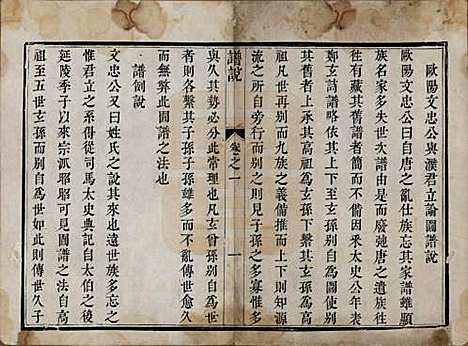 歐陽文忠公與濮君立論圖譜說
歐陽文忠公曰自唐之亂仕族忘其家譜雖顯
族名家多失世次譜學由是而廢弛唐之遺族往
往有藏其舊譜者時得而見而不備因采太史公年表
鄭玄詩譜略依其上下旁行作為譜圖上自高
其舊者上自高祖為玄孫下繫其玄孫
祖凡世再別而九族之義備推而上下則知源
流之所自旁行而別則見子孫之多寡惟多
譜說
卷之一
一
與久其勢必分此常理也凡玄曾孫別自為世
者則各繫其子孫子孫雖多而不亂傳世愈久
而無弊此圖譜之法也
譜例說
文忠公又曰姓氏之出其來也遠世族多忘之
惟君立之系得從司馬太史典記自太伯之後
延陵季子以來宗派昭昭可見圖譜之法自高
祖至五世玄孫而別自為世如此則傳世久子